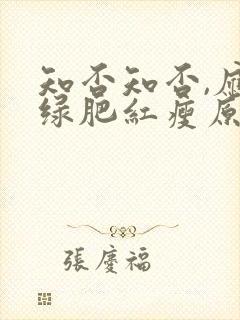 知否知否,應
绿肥紅瘦原
張慶福